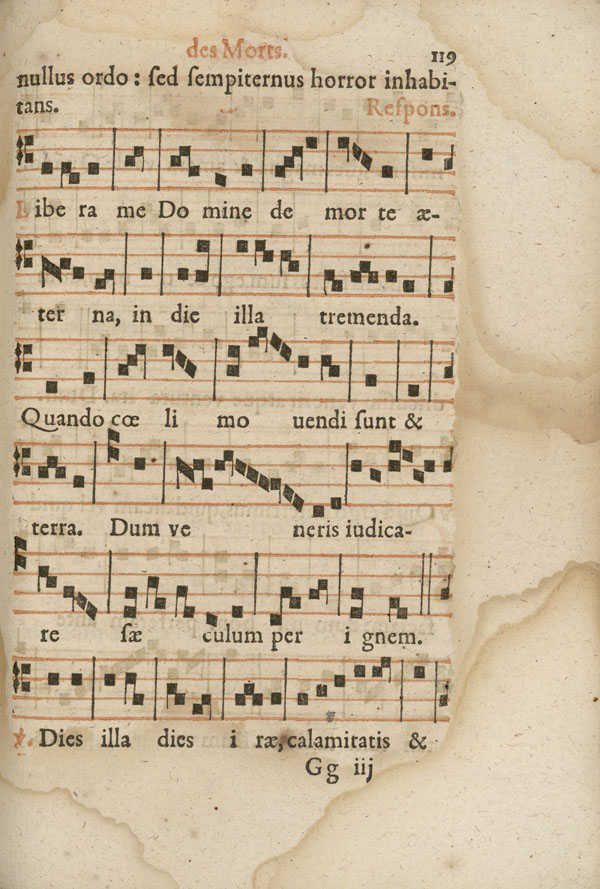 des Morts. 119
nullus ordo : ſed ſempiternus horror inhabi-
tans. Reſpons.
Libe ra me Do mine de mor te æ-
ter na, in die illa tremenda.
Quando cœ li mo uendi ſunt &
terra. Dum ve neris iudica-
re ſæ culum per i gnem.
℣. Dies illa dies i ræ, calamitatis &
Gg iij